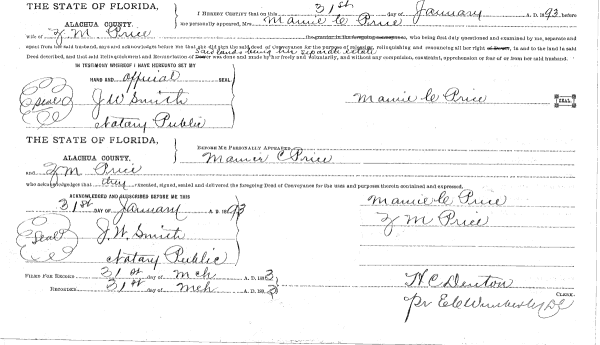 THE STATE OF FLORIDA,
ALACHUA COUNTY.
I HEREBY CERTIFY that on this 31st day of January A. D. 1893 before
me personally appeared, Mrs. Mamie C Price
wife of Z M Price the grantor in the foregoing conveyance, who being first duly questioned and examined by me, separate and
apart from her said husband, says and acknowledges before me that she did sign the said deed of Conveyance for the purpose of releasing, relinquishing and renouncing all her right of Dower, in and to the land in said
said lands being her separate estate
Deed described, and that said Relinquishment and Renunciation of Dower was done and made by her freely and voluntarily, and without any compulsion, constraint, apprehension or fear of or from her said husband.
IN TESTIMONY WHEREOF I HAVE HERETO SET MY
HAND AND official SEAL
Seal
J W Smith
Notary Public
Mamie C Price
SEAL.
THE STATE OF FLORIDA,
ALACHUA COUNTY.
BEFORE ME PERSONALLY APPEARED
Mamie C Price
and Z M Price
who acknowledges that they executed, signed, sealed and delivered the foregoing Deed of Conveyance for the uses and purposes therein contained and expressed,
ACKNOWLEDGED AND SUBSCRIBED BEFORE ME THIS
31st DAY OF January A. D. 1893
Seal
J. W. Smith
Notary Public
Mamie C. Price
Z M Price
FILED FOR RECORD 31st day of Mch A. D. 1893
RECORDED 31st day of Mch A. D. 1893
H C Denton
CLERK.
pr